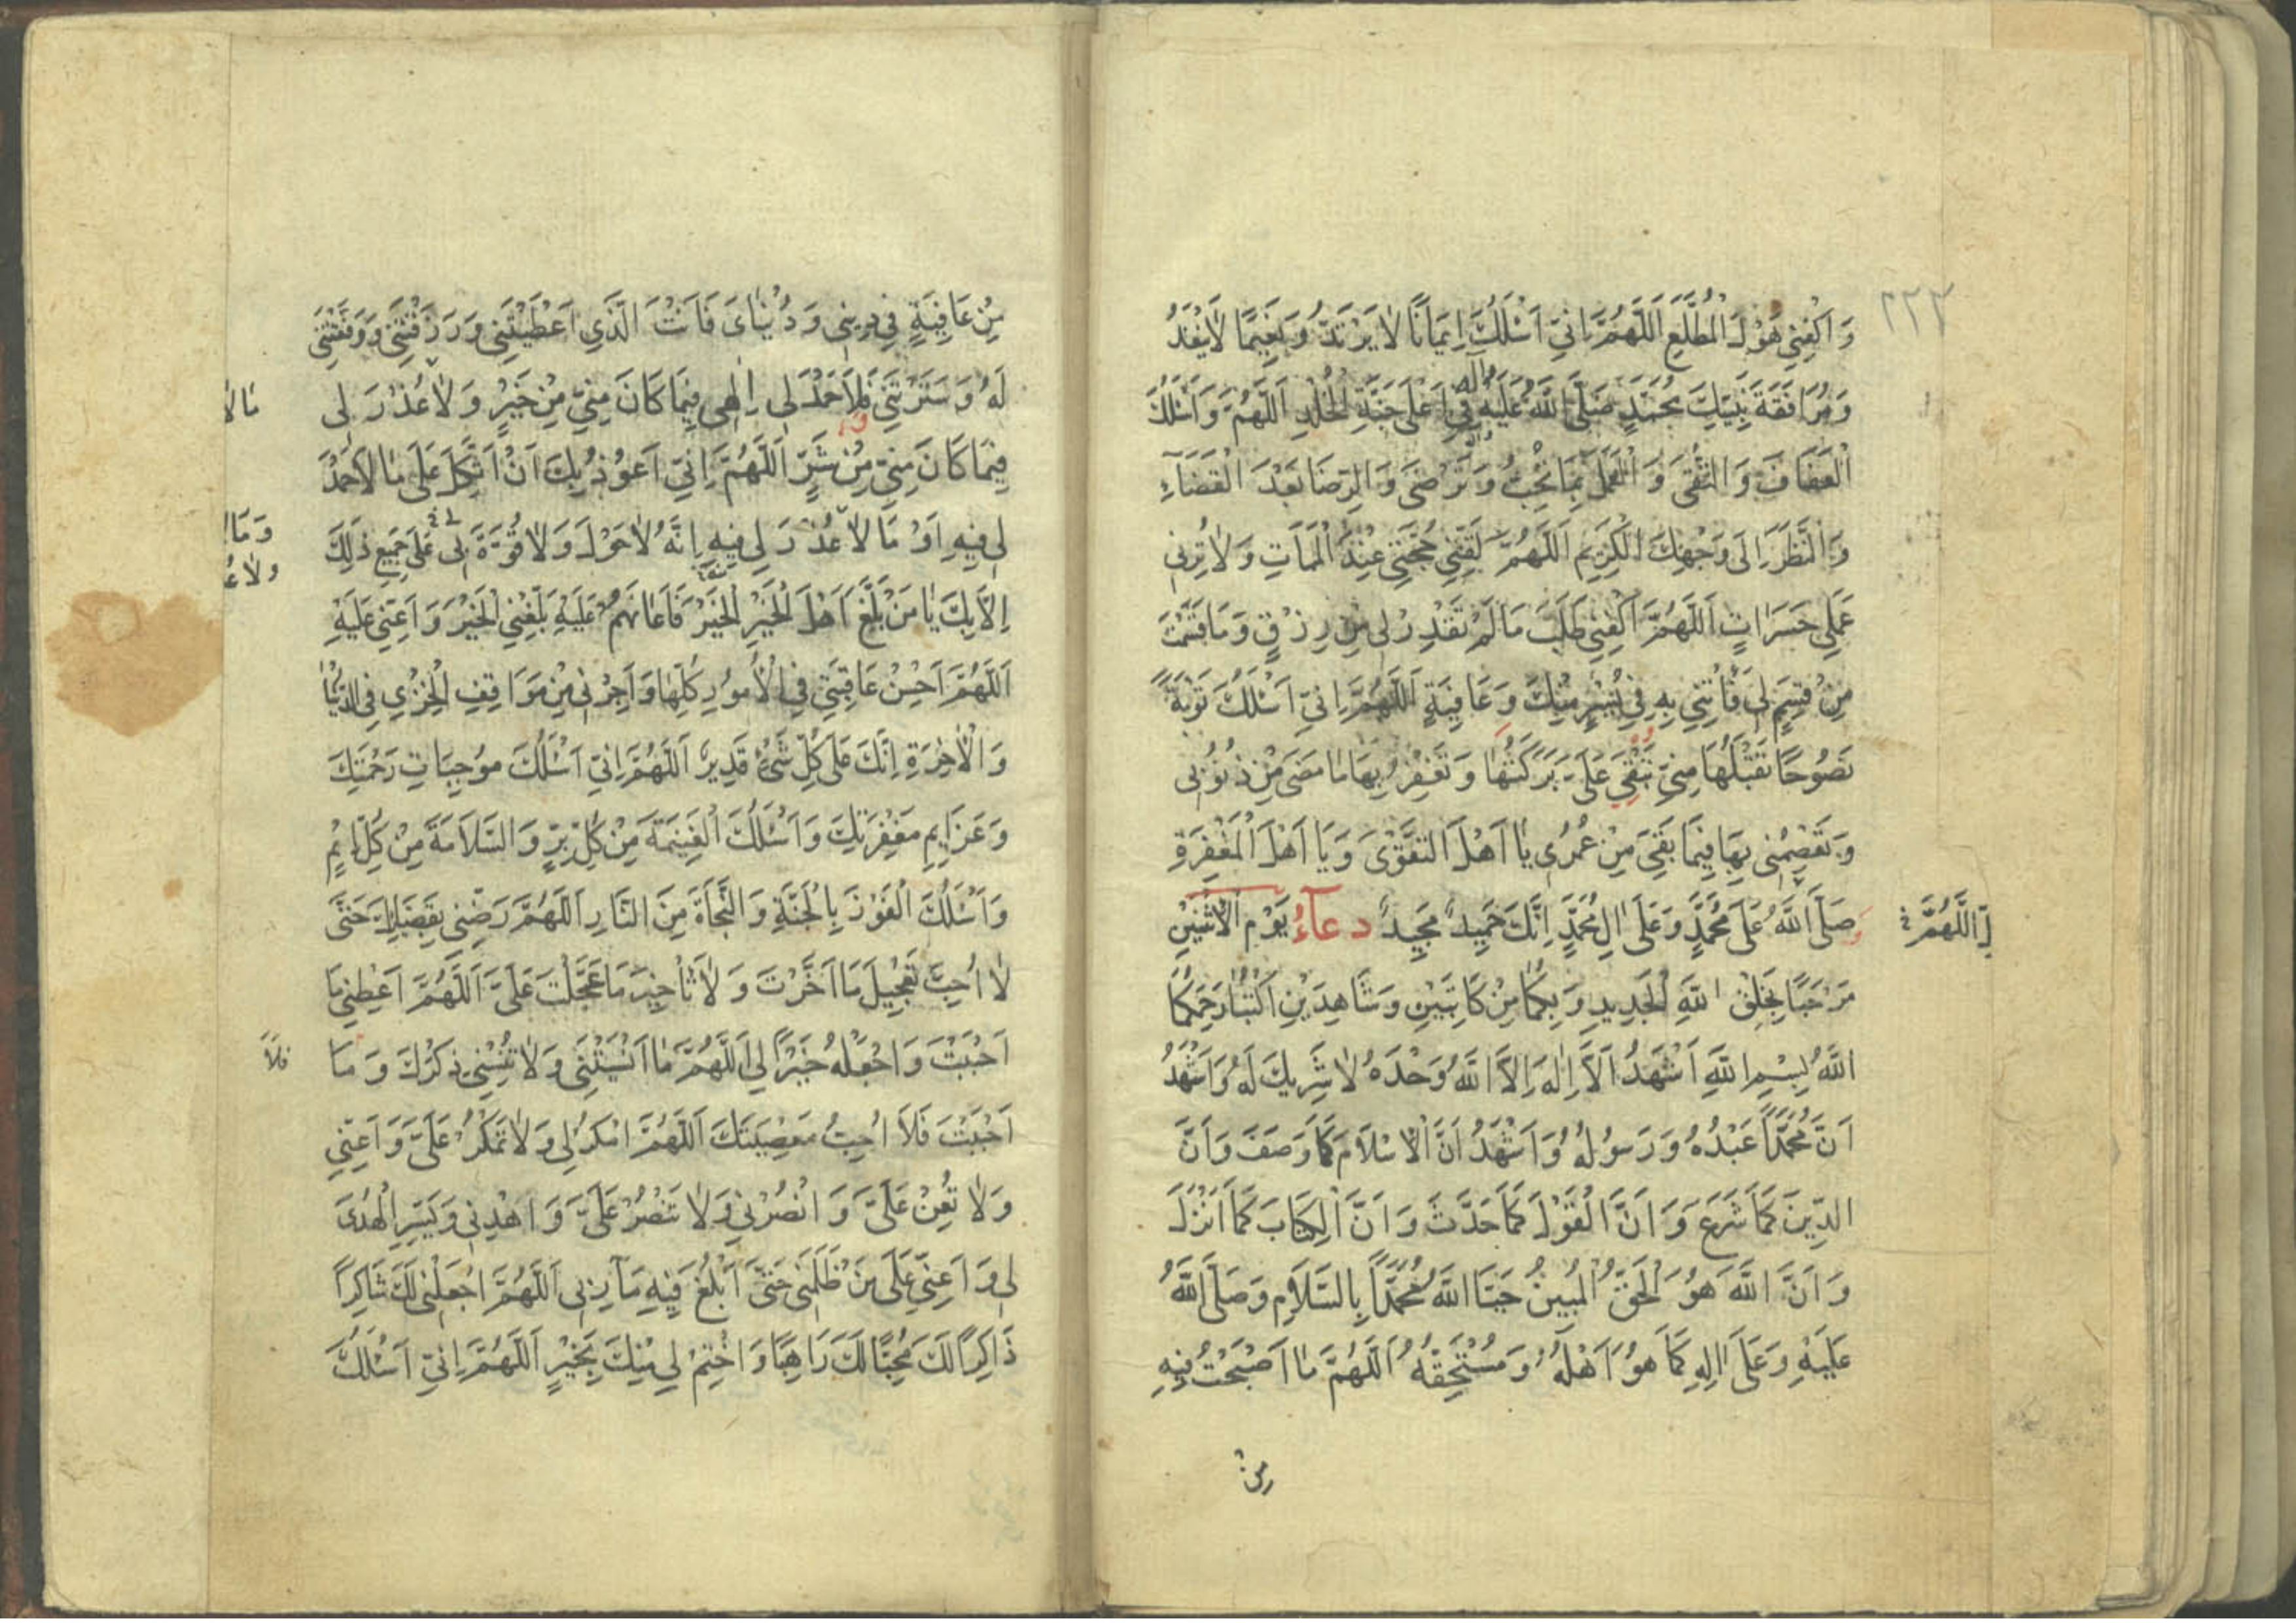 وَاكْفِنِي هَوْلَ الْمُطَّلَعِ اَللّٰهُمَّ اِنِّي اَسْئَلُكَ اِيمَانًا لاٰ يَرْتَدُّ وَ نَعِيمًا لاٰ يَنْفَدُ
٢٢٣
وَ مُرَافَقَةَ نَبِيِّكَ مُحَمَّدٍ صَلَّى اللّٰهُ عَلَيْهِ وآله فِي اَعْلىٰ جَنَّةِ الْخُلْدِ اَللّٰهُمَّ وَ اَسْئَلُكَ
الْعَفَافَ وَ التُّقىٰ وَ الْعَمَلَ بِمَا تُحِبُّ وَ تَرْضىٰ وَ الرِّضَا بَعْدَ الْقَضَآءِ
وَ النَّظَرَ اِلىٰ وَجْهِكَ الْكَرِيمِ اَللّٰهُمَّ لَقِّنِي حُجَّتِي عِنْدَ الْمَمَاتِ وَ لاٰ تُرِنِي
عَمَلِي حَسَرَاتٍ اَللّٰهُمَّ اكْفِنِي طَلَبَ مَا لَمْ تُقَدِّرْ لِي مِنْ رِزْقٍ وَ مَا قَسَمْتَ
مِنْ قِسَمٍ لِي فَأْتِنِي بِهِ فِي يُسْرٍ مِنْكَ وَ عَافِيَةٍ اَللّٰهُمَّ اِنِّي اَسْئَلُكَ تَوْبَةً
نَصُوحًا تَقْبَلُهَا مِنِّي تَبْقىٰ عَلَيَّ بَرَكَتُهَا وَ تَغْفِرُ بِهَا مَا مَضىٰ مِنْ ذُنُوبِي
وَ تَعْصِمُنِي بِهَا فِيمَا بَقِيَ مِنْ عُمُرِي يَا اَهْلَ التَّقْوىٰ وَ يَا اَهْلَ الْمَغْفِرَةِ
وَ صَلَّى اللّٰهُ عَلىٰ مُحَمَّدٍ وَ عَلىٰ اٰلِ مُحَمَّدٍ اِنَّكَ حَمِيدٌ مَجِيدٌ دعآءُ يَوْمِ الْاِثْنَيْنِ
اللّٰهُمَّ
مَرْحَبًا بِخَلْقِ اللّٰهِ الْجَدِيدِ وَ بِكُمَا مِنْ كَاتِبَيْنِ وَ شَاهِدَيْنِ اكْتُبَا رَحِمَكُمَا
اللّٰهُ بِسْمِ اللّٰهِ اَشْهَدُ اَلاَّ اِلٰهَ اِلاَّ اللّٰهُ وَحْدَهُ لاٰ شَرِيكَ لَهُ وَ اَشْهَدُ
اَنَّ مُحَمَّدًا عَبْدُهُ وَ رَسُولُهُ وَ اَشْهَدُ اَنَّ الْاِسْلاٰمَ كَمَا وَصَفَ وَ اَنَّ
الدِّينَ كَمَا شَرَعَ وَ اَنَّ الْقَوْلَ كَمَا حَدَّثَ وَ اَنَّ الْكِتَابَ كَمَا اَنْزَلَ
وَ اَنَّ اللّٰهَ هُوَ الْحَقُّ الْمُبِينُ حَيَّا اللّٰهُ مُحَمَّدًا بِالسَّلاٰمِ وَ صَلَّى اللّٰهُ
عَلَيْهِ وَ عَلىٰ اٰلِهِ كَمَا هُوَ اَهْلُهُ وَ مُسْتَحِقُّهُ اَللّٰهُمَّ مٰا اَصْبَحْتُ فِيهِ
مِنْ
مِنْ عَافِيَةٍ فِي دِينِي وَ دُنْيَايَ فَاَنْتَ الَّذِي اَعْطَيْتَنِي وَ رَزَقْتَنِي وَ وَفَّقْتَنِي
لَهُ وَ سَتَرْتَنِي فَلاٰ حَمْدَ لِي اِلٰهِي فِيمَا كَانَ مِنِّي مِنْ خَيْرٍ وَ لاٰ عُذْرَ لِي
مَا لا
فِيمَا كَانَ مِنِّي مِنْ شَرٍّ اَللّٰهُمَّ اِنِّي اَعُوذُ بِكَ اَنْ اَتَّكِلَ عَلىٰ مَا لاَ حَمْدَ
لِي فِيهِ اَوْ مَا لاٰ عُذْرَ لِي فِيهِ اِنَّهُ لاٰ حَوْلَ وَ لاٰ قُوَّةَ لِي عَلىٰ جَمِيعِ ذٰلِكَ
وَ مَا
ولاٰ عُ
اِلاَّ بِكَ يَا مَنْ بَلَّغَ اَهْلَ الْخَيْرِ الْخَيْرَ وَ اَعَانَهُمْ عَلَيْهِ بَلِّغْنِي الْخَيْرَ وَ اَعِنِّي عَلَيْهِ
اَللّٰهُمَّ اَحْسِنْ عَاقِبَتِي فِي الْاُمُورِ كُلِّهَا وَ اَجِرْنِي مِنْ مَوَاقِفِ الْخِزْيِ فِي الدُّنْيَا
وَ الْاٰخِرَةِ اِنَّكَ عَلىٰ كُلِّ شَيْءٍ قَدِيرٌ اَللّٰهُمَّ اِنِّي اَسْئَلُكَ مُوجِبَاتِ رَحْمَتِكَ
وَ عَزَايِمَ مَغْفِرَتِكَ وَ اَسْئَلُكَ الْغَنِيمَةَ مِنْ كُلِّ بِرٍّ وَ السَّلاَمَةَ مِنْ كُلِّ اِثْمٍ
وَ اَسْئَلُكَ الْفَوْزَ بِالْجَنَّةِ وَ النَّجَاةَ مِنَ النَّارِ اَللّٰهُمَّ رَضِّنِي بِقَضَائِكَ حَتّىٰ
لاٰ اُحِبَّ تَعْجِيلَ مَا اَخَّرْتَ وَ لاٰ تَأْخِيرَ مَا عَجَّلْتَ عَلَيَّ اَللّٰهُمَّ اَعْطِنِي مَا
اَحْبَبْتَ وَ اجْعَلْهُ خَيْرًا لِي اَللّٰهُمَّ مٰا اَنْسَيْتَنِي وَ لاٰ تُنْسِنِي ذِكْرَكَ وَ مَا
فلاَ
اَحْبَبْتَ فَلاَ اُحِبُّ مَعْصِيَتَكَ اَللّٰهُمَّ امْكُرْ لِي وَ لاٰ تَمْكُرْ عَلَيَّ وَ اَعِنِّي
وَ لاٰ تُعِنْ عَلَيَّ وَ انْصُرْنِي وَ لاٰ تَنْصُرْ عَلَيَّ وَ اهْدِنِي وَ يَسِّرِ الْهُدىٰ
لِي وَ اَعِنِّي عَلىٰ مَنْ ظَلَمَنِي حَتّىٰ اَبْلُغَ فِيهِ مَآرِبِي اَللّٰهُمَّ اجْعَلْنِي لَكَ شَاكِرًا
ذَاكِرًا لَكَ مُحِبًّا لَكَ رَاهِبًا وَ اخْتِمْ لِي مِنْكَ بِخَيْرٍ اَللّٰهُمَّ اِنِّي اَسْئَلُكَ